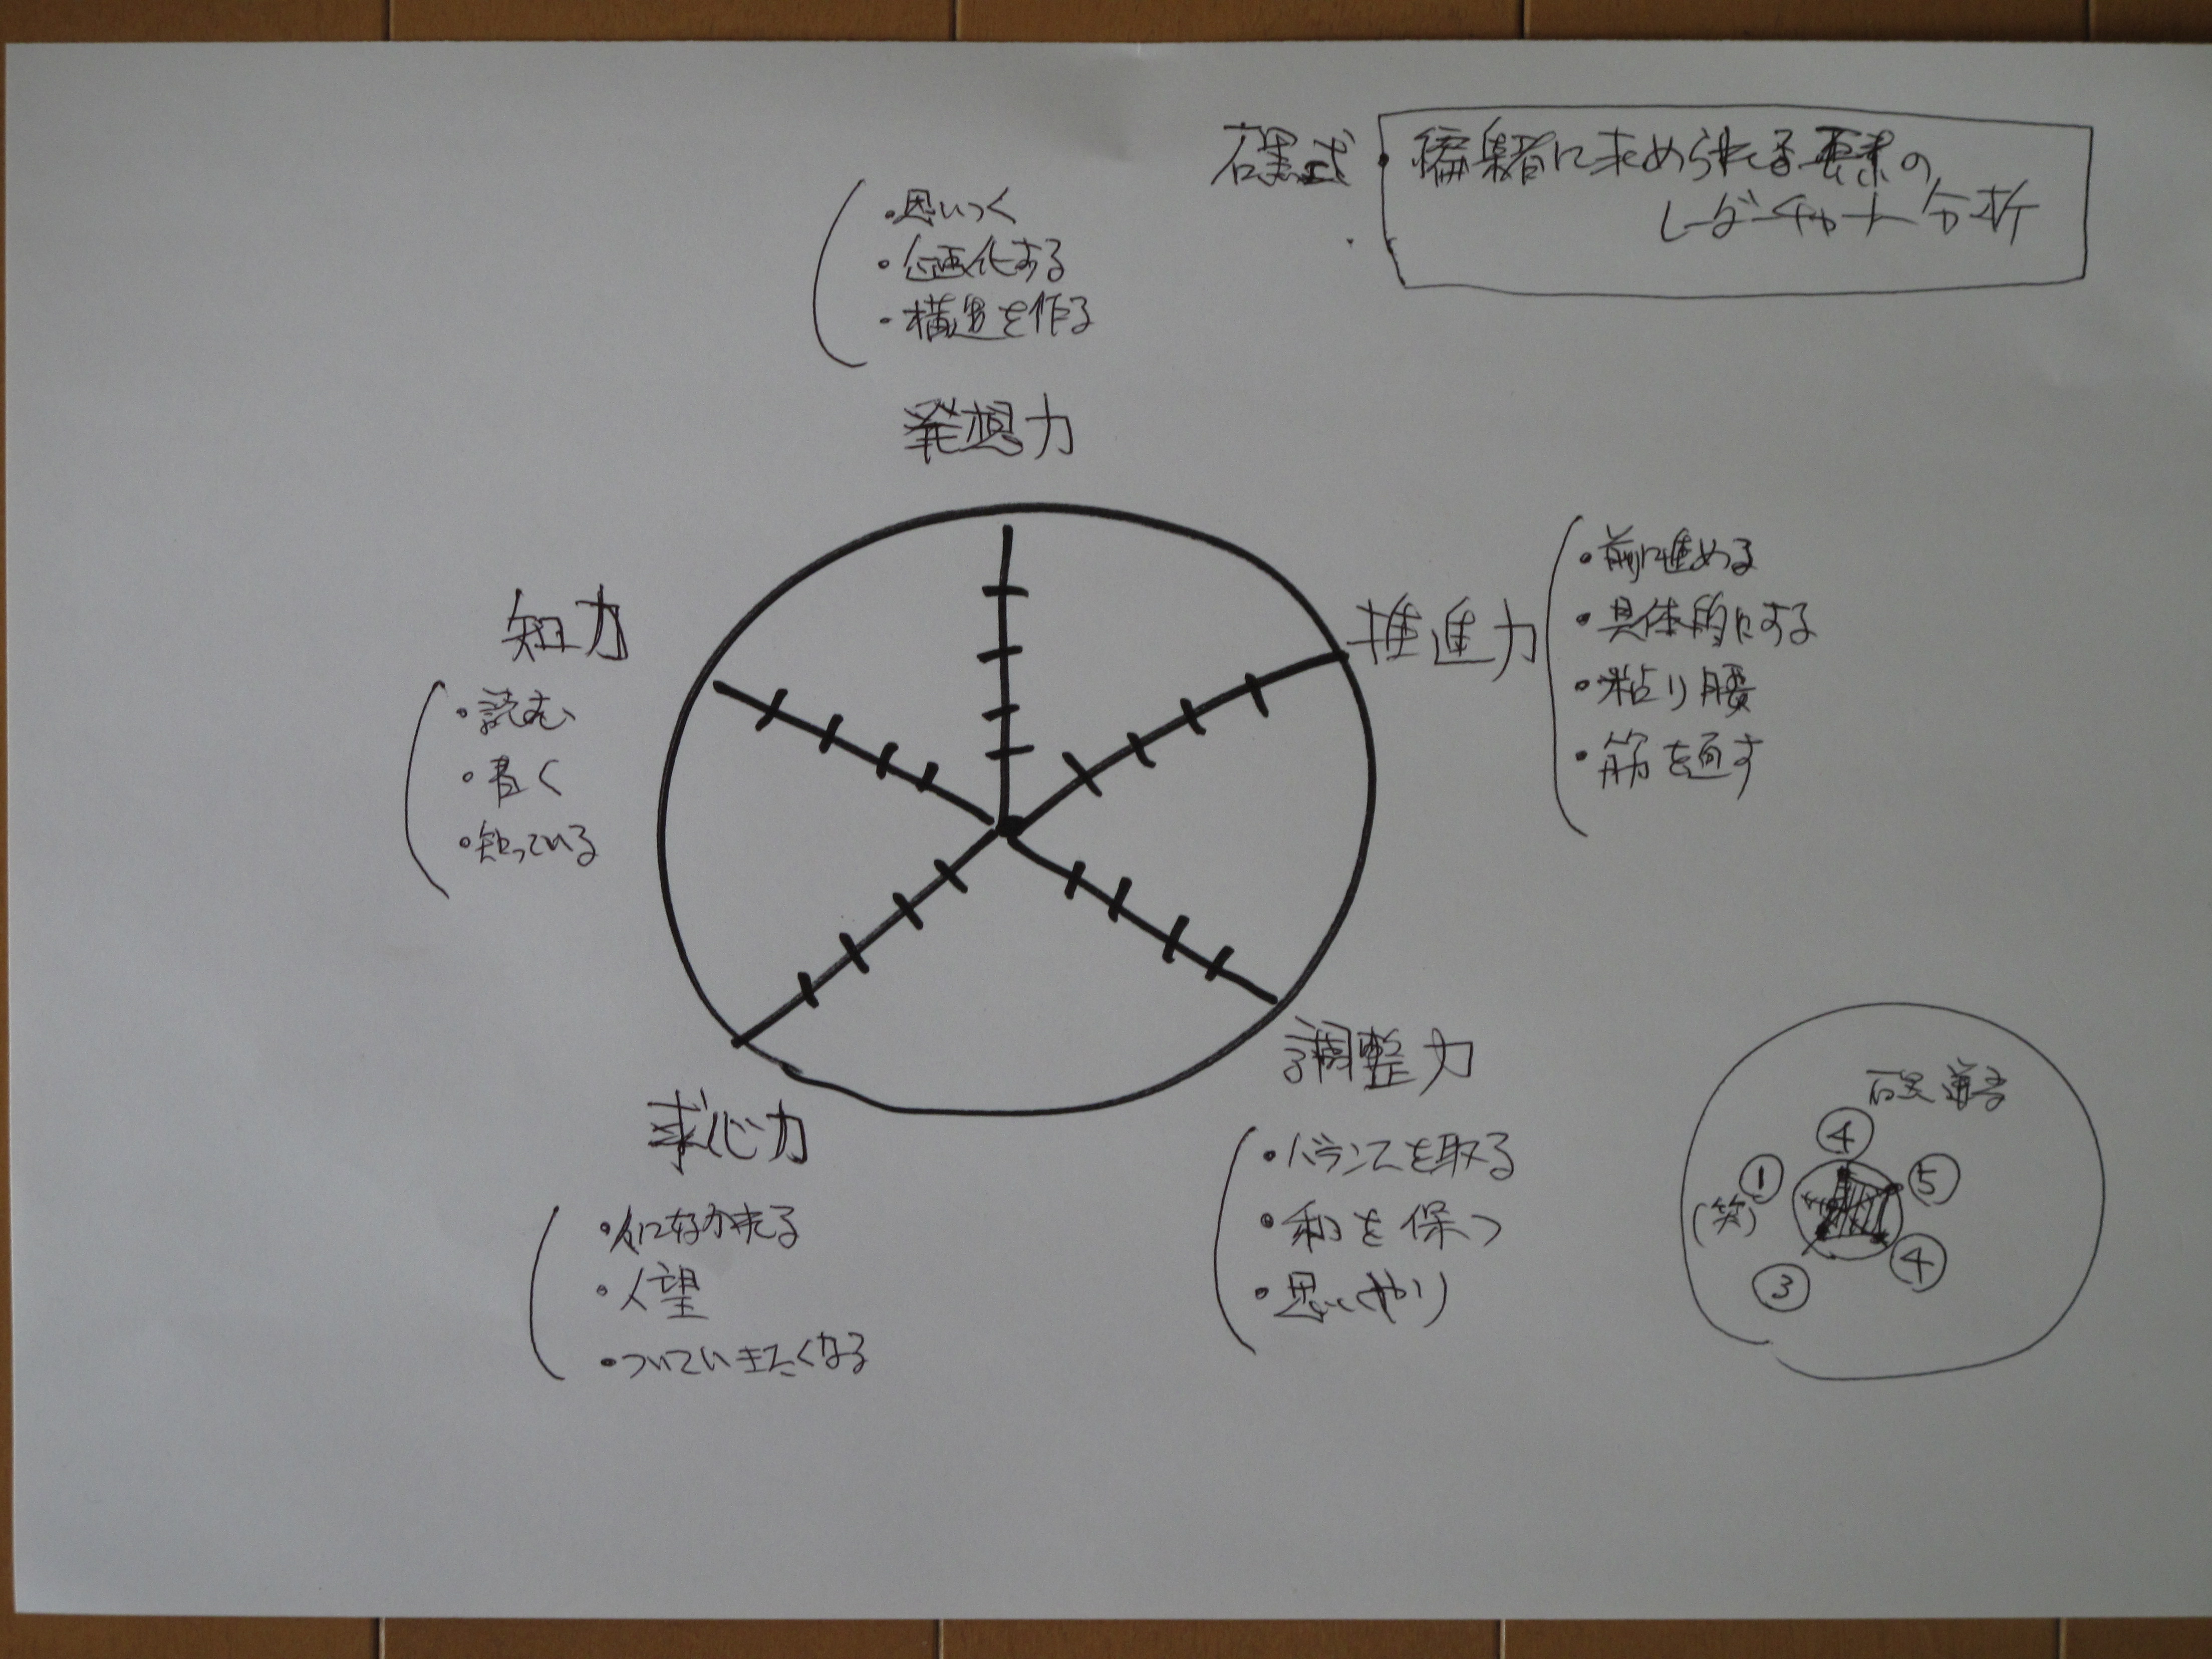 石黒式
編集者に求められる要素の
レーダーチャート分析
・思いつく
・企画化する
・構造を作る
発想力
推進力
・前に進める
・具体的にする
・粘り腰
・筋を通す
知力
・読む
・書く
・知っている
調整力
・バランスを取る
・和を保つ
・思いやり
求心力
・人に好かれる
・人望
・ついていきたくなる
石黒
④
①
⑤
(笑)
④
③